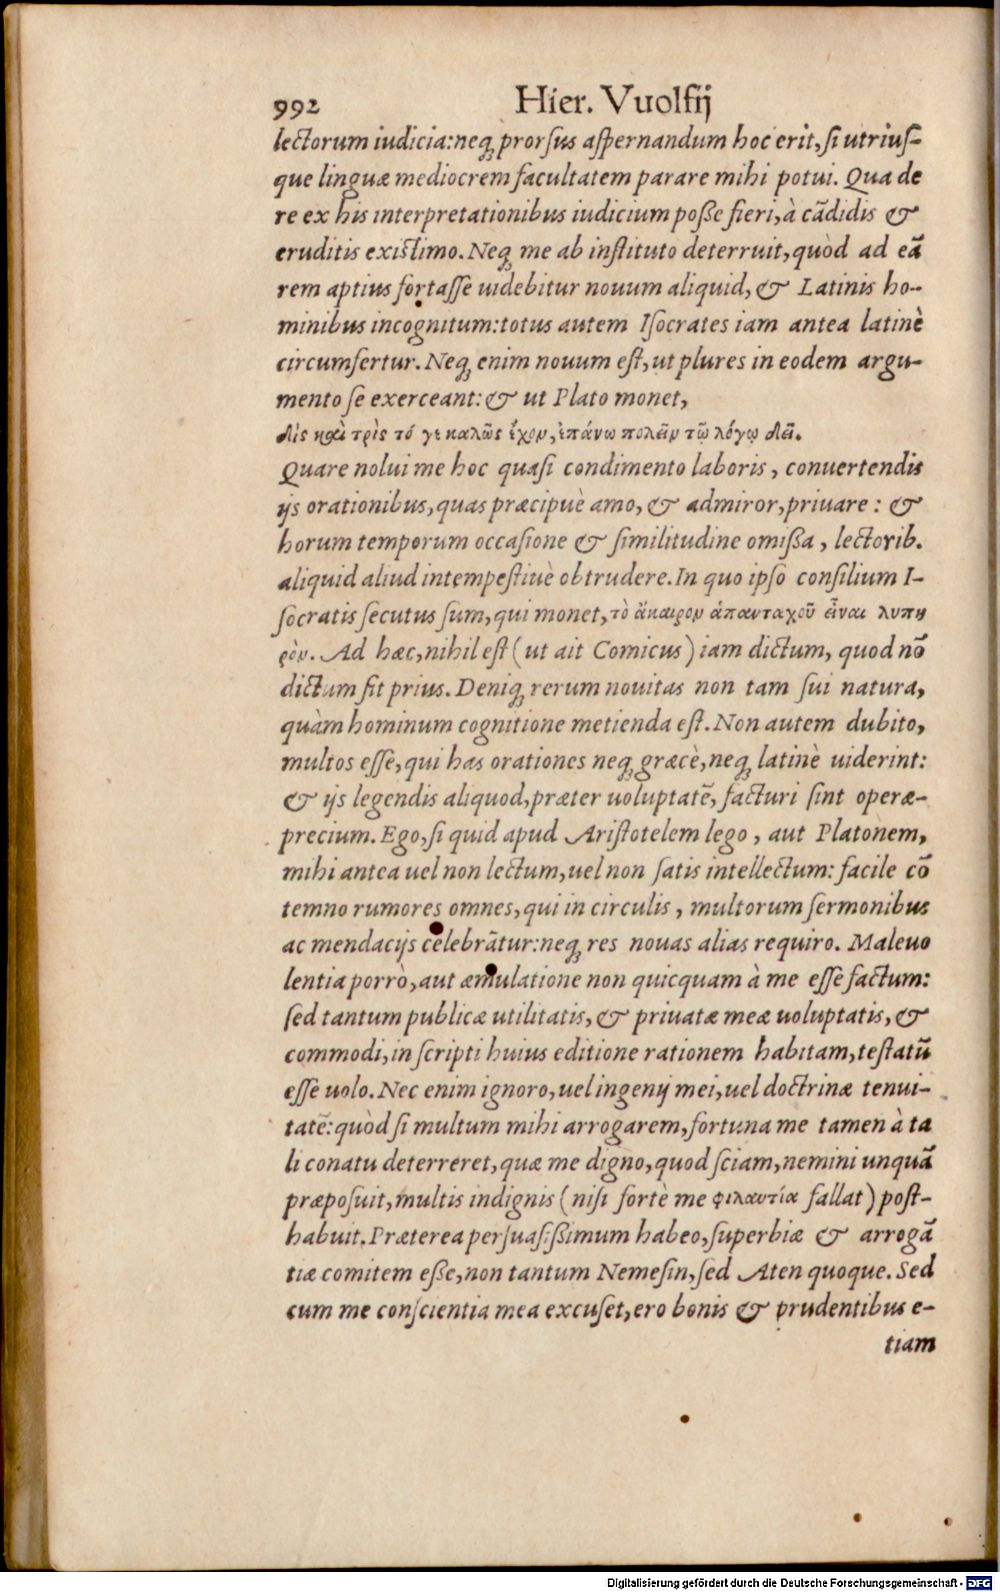 992 Hier. Vuolfij
lectorum iudicia: neq; prorsus aspernandum hoc erit, si utrius-
que linguæ mediocrem facultatem parare mihi potui. Qua de
re ex his interpretationibus iudicium poße fieri, à cādidis &
eruditis existimo. Neq; me ab instituto deterruit, quòd ad eā
rem aptius fortasse uidebitur nouum aliquid, & Latinis ho-
minibus incognitum: totus autem Isocrates iam antea latinè
circumfertur. Neq; enim nouum est, ut plures in eodem argu-
mento se exerceant: & ut Plato monet,
δὶς καὶ τρὶς τό γε καλῶς ἔχον, ἐπάνω πολεῖν τῷ λόγῳ δεῖ.
Quare nolui me hoc quasi condimento laboris, conuertendis
ijs orationibus, quas præcipuè amo, & admiror, priuare: &
horum temporum occasione & similitudine omißa, lectorib.
aliquid aliud intempestiuè obtrudere. In quo ipso consilium I-
socratis secutus sum, qui monet, τὸ ἄκαιρον ἁπανταχοῦ εἶναι λυπη
ρὸν. Ad hæc, nihil est (ut ait Comicus) iam dictum, quod nō
dictum sit prius. Deniq; rerum nouitas non tam sui natura,
quàm hominum cognitione metienda est. Non autem dubito,
multos esse, qui has orationes neq; græcè, neq; latinè uiderint:
& ijs legendis aliquod, præter uoluptatē, facturi sint operæ-
precium. Ego, si quid apud Aristotelem lego, aut Platonem,
mihi antea uel non lectum, uel non satis intellectum: facile cō
temno rumores omnes, qui in circulis, multorum sermonibus
ac mendacijs celebrātur: neq; res nouas alias requiro. Maleuo
lentia porrò, aut æmulatione non quicquam à me esse factum:
sed tantum publicæ utilitatis, & priuatæ meæ uoluptatis, &
commodi, in scripti huius editione rationem habitam, testatū
esse uolo. Nec enim ignoro, uel ingenij mei, uel doctrinæ tenui-
tatē: quòd si multum mihi arrogarem, fortuna me tamen à ta
li conatu deterreret, quæ me digno, quod sciam, nemini unquā
præposuit, multis indignis (nisi fortè me φιλαυτία fallat) post-
habuit. Præterea persuasißimum habeo, superbiæ & arrogā
tiæ comitem eße, non tantum Nemesin, sed Aten quoque. Sed
cum me conscientia mea excuset, ero bonis & prudentibus e-
tiam
Digitalisierung gefördert durch die Deutsche Forschungsgemeinschaft - DFG